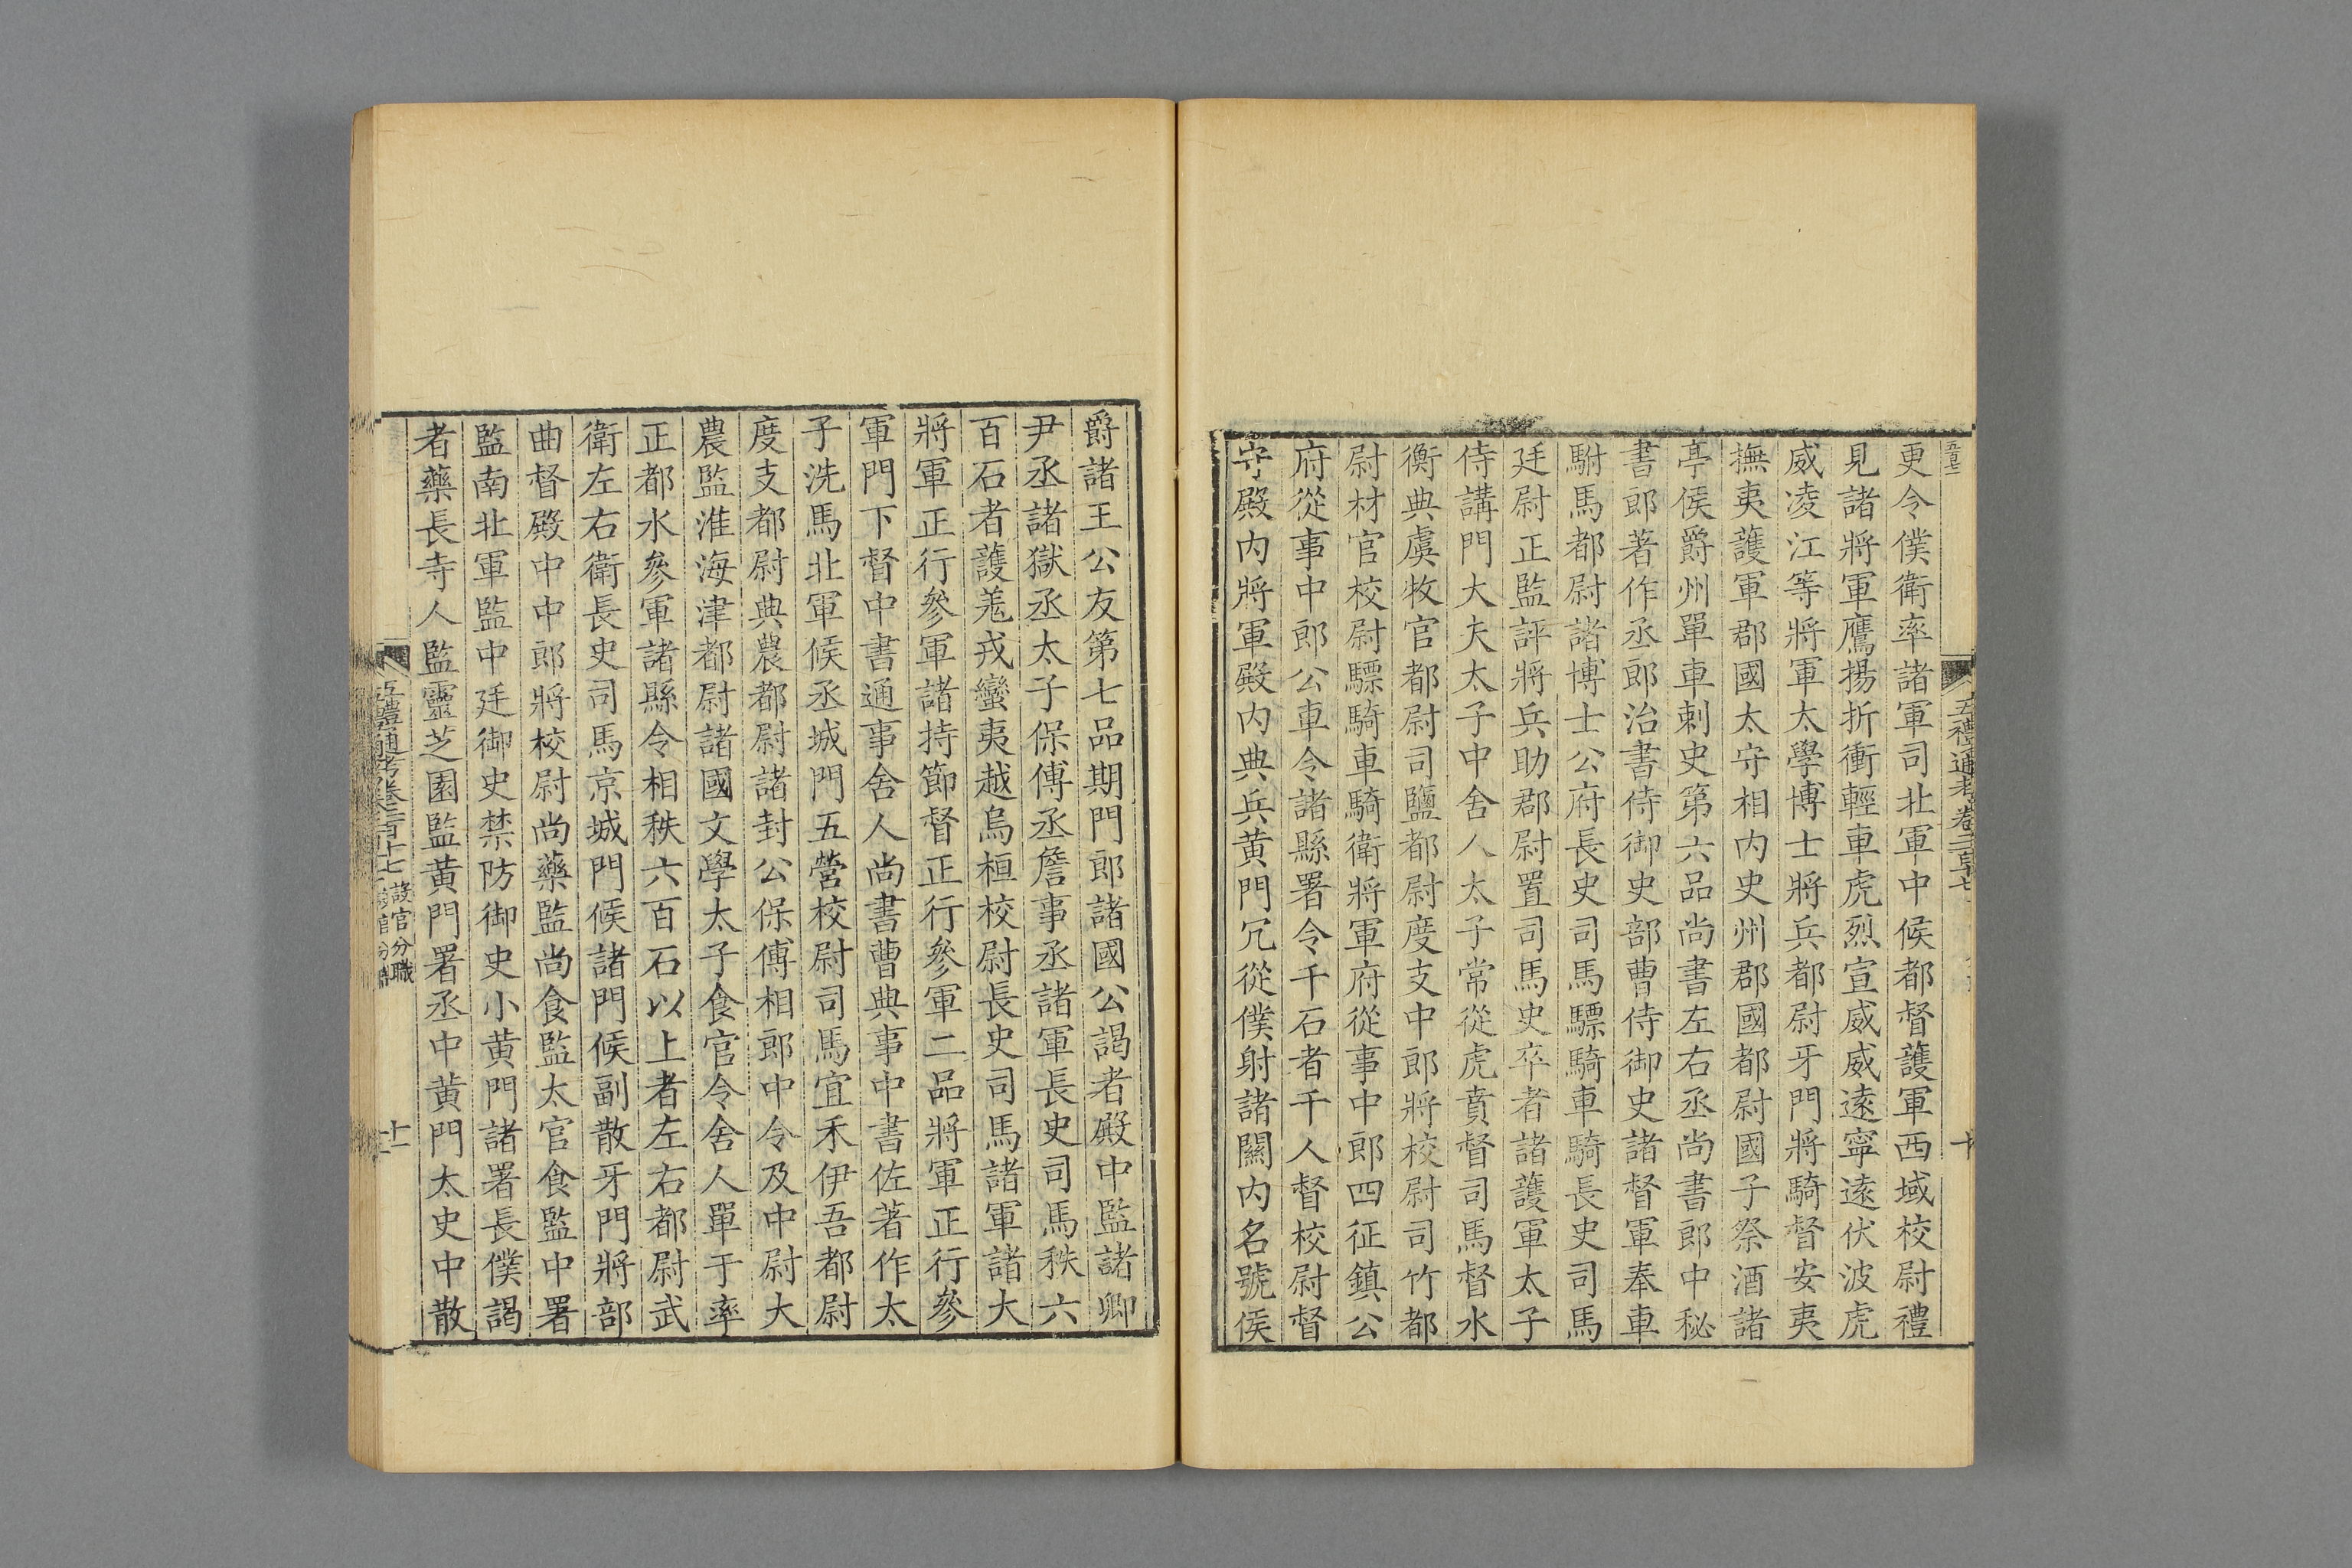 五禮通考卷二百十七
十
更令僕衛率諸軍司北軍中候都督護軍西域校尉禮
見諸將軍鷹揚折衝輕車虎烈宣威威遠寧遠伏波虎
威凌江等將軍太學博士將兵都尉牙門將騎督安夷
撫夷護軍郡國太守相內史州郡國都尉國子祭酒諸
亭侯爵州單車刺史第六品尚書左右丞尚書郎中秘
書郎著作丞郎治書侍御史部曹侍御史諸督軍奉車
駙馬都尉諸博士公府長史司馬驃騎車騎長史司馬
廷尉正監評將兵助郡尉置司馬史卒者諸護軍太子
侍講門大夫太子中舍人太子常從虎賁督司馬督水
衡典虞牧官都尉司鹽都尉度支中郎將校尉司竹都
尉材官校尉驃騎車騎衛將軍府從事中郎四征鎮公
府從事中郎公車令諸縣署令千石者千人督校尉督
守殿內將軍殿內典兵黃門冗從僕射諸關內名號侯
爵諸王公友第七品期門郎諸國公謁者殿中監諸卿
尹丞諸獄丞太子保傅丞詹事丞諸軍長史司馬秩六
百石者護羗戎蠻夷越烏桓校尉長史司馬諸軍諸大
將軍正行參軍諸持節督正行參軍二品將軍正行參
軍門下督中書通事舍人尚書曹典事中書佐著作太
子洗馬北軍候丞城門五營校尉司馬宜禾伊吾都尉
度支都尉典農都尉諸封公保傅相郎中令及中尉大
農監淮海津都尉諸國文學太子食官令舍人單于率
正都水參軍諸縣令相秩六百石以上者左右都尉武
衛左右衛長史司馬京城門候諸門候副散牙門將部
曲督殿中中郎將校尉尚藥監尚食監太官食監中署
監南北軍監中廷御史禁防御史小黃門諸署長僕謁
者藥長寺人監靈芝園監黃門署丞中黃門太史中散
五禮通考卷二百十七
設官分職
十一